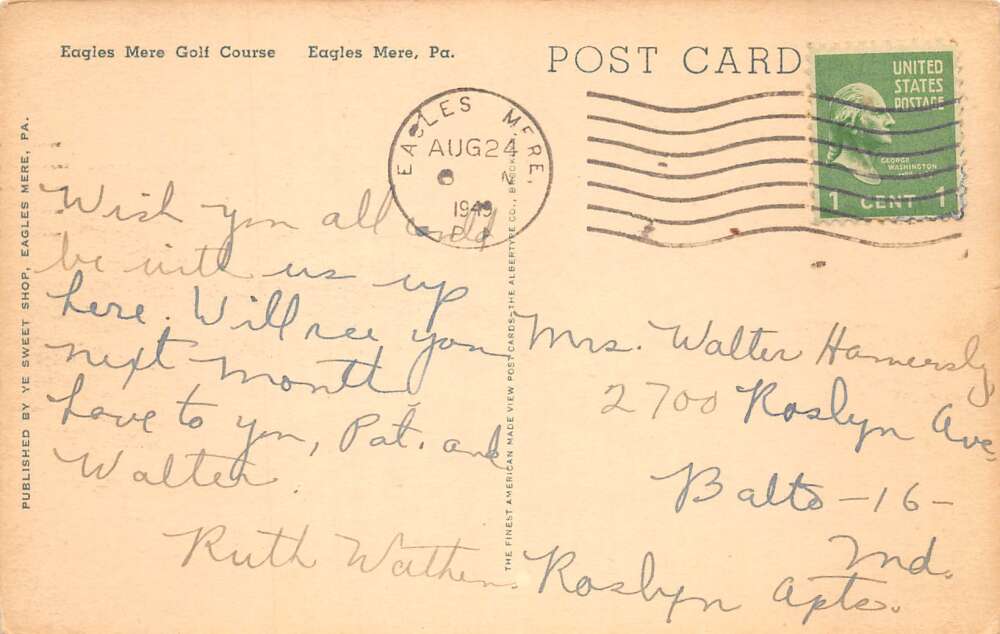 Eagles Mere Golf Course    Eagles Mere, Pa.
POST CARD
UNITED
STATES
POSTAGE
GEORGE
WASHINGTON
1 CENT 1
EAGLES MERE,
AUG 24
M
1949
PA
PUBLISHED BY YE SWEET SHOP, EAGLES MERE, PA.
Wish you all could
be with us up
here. Will see you
next month
Love to you, Pat. and
Walter.
Ruth Wathen
THE FINEST AMERICAN MADE VIEW POST CARDS—THE ALBERTYPE CO.,
Mrs. Walter Hamersly
2700 Roslyn Ave.
Balto -16-
Md.
Roslyn Apts.